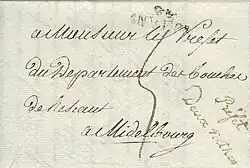 a Monsieur le Prefet
du Departement des Bouches
de l'escaut
a Middelbourg
Pref.
Deux